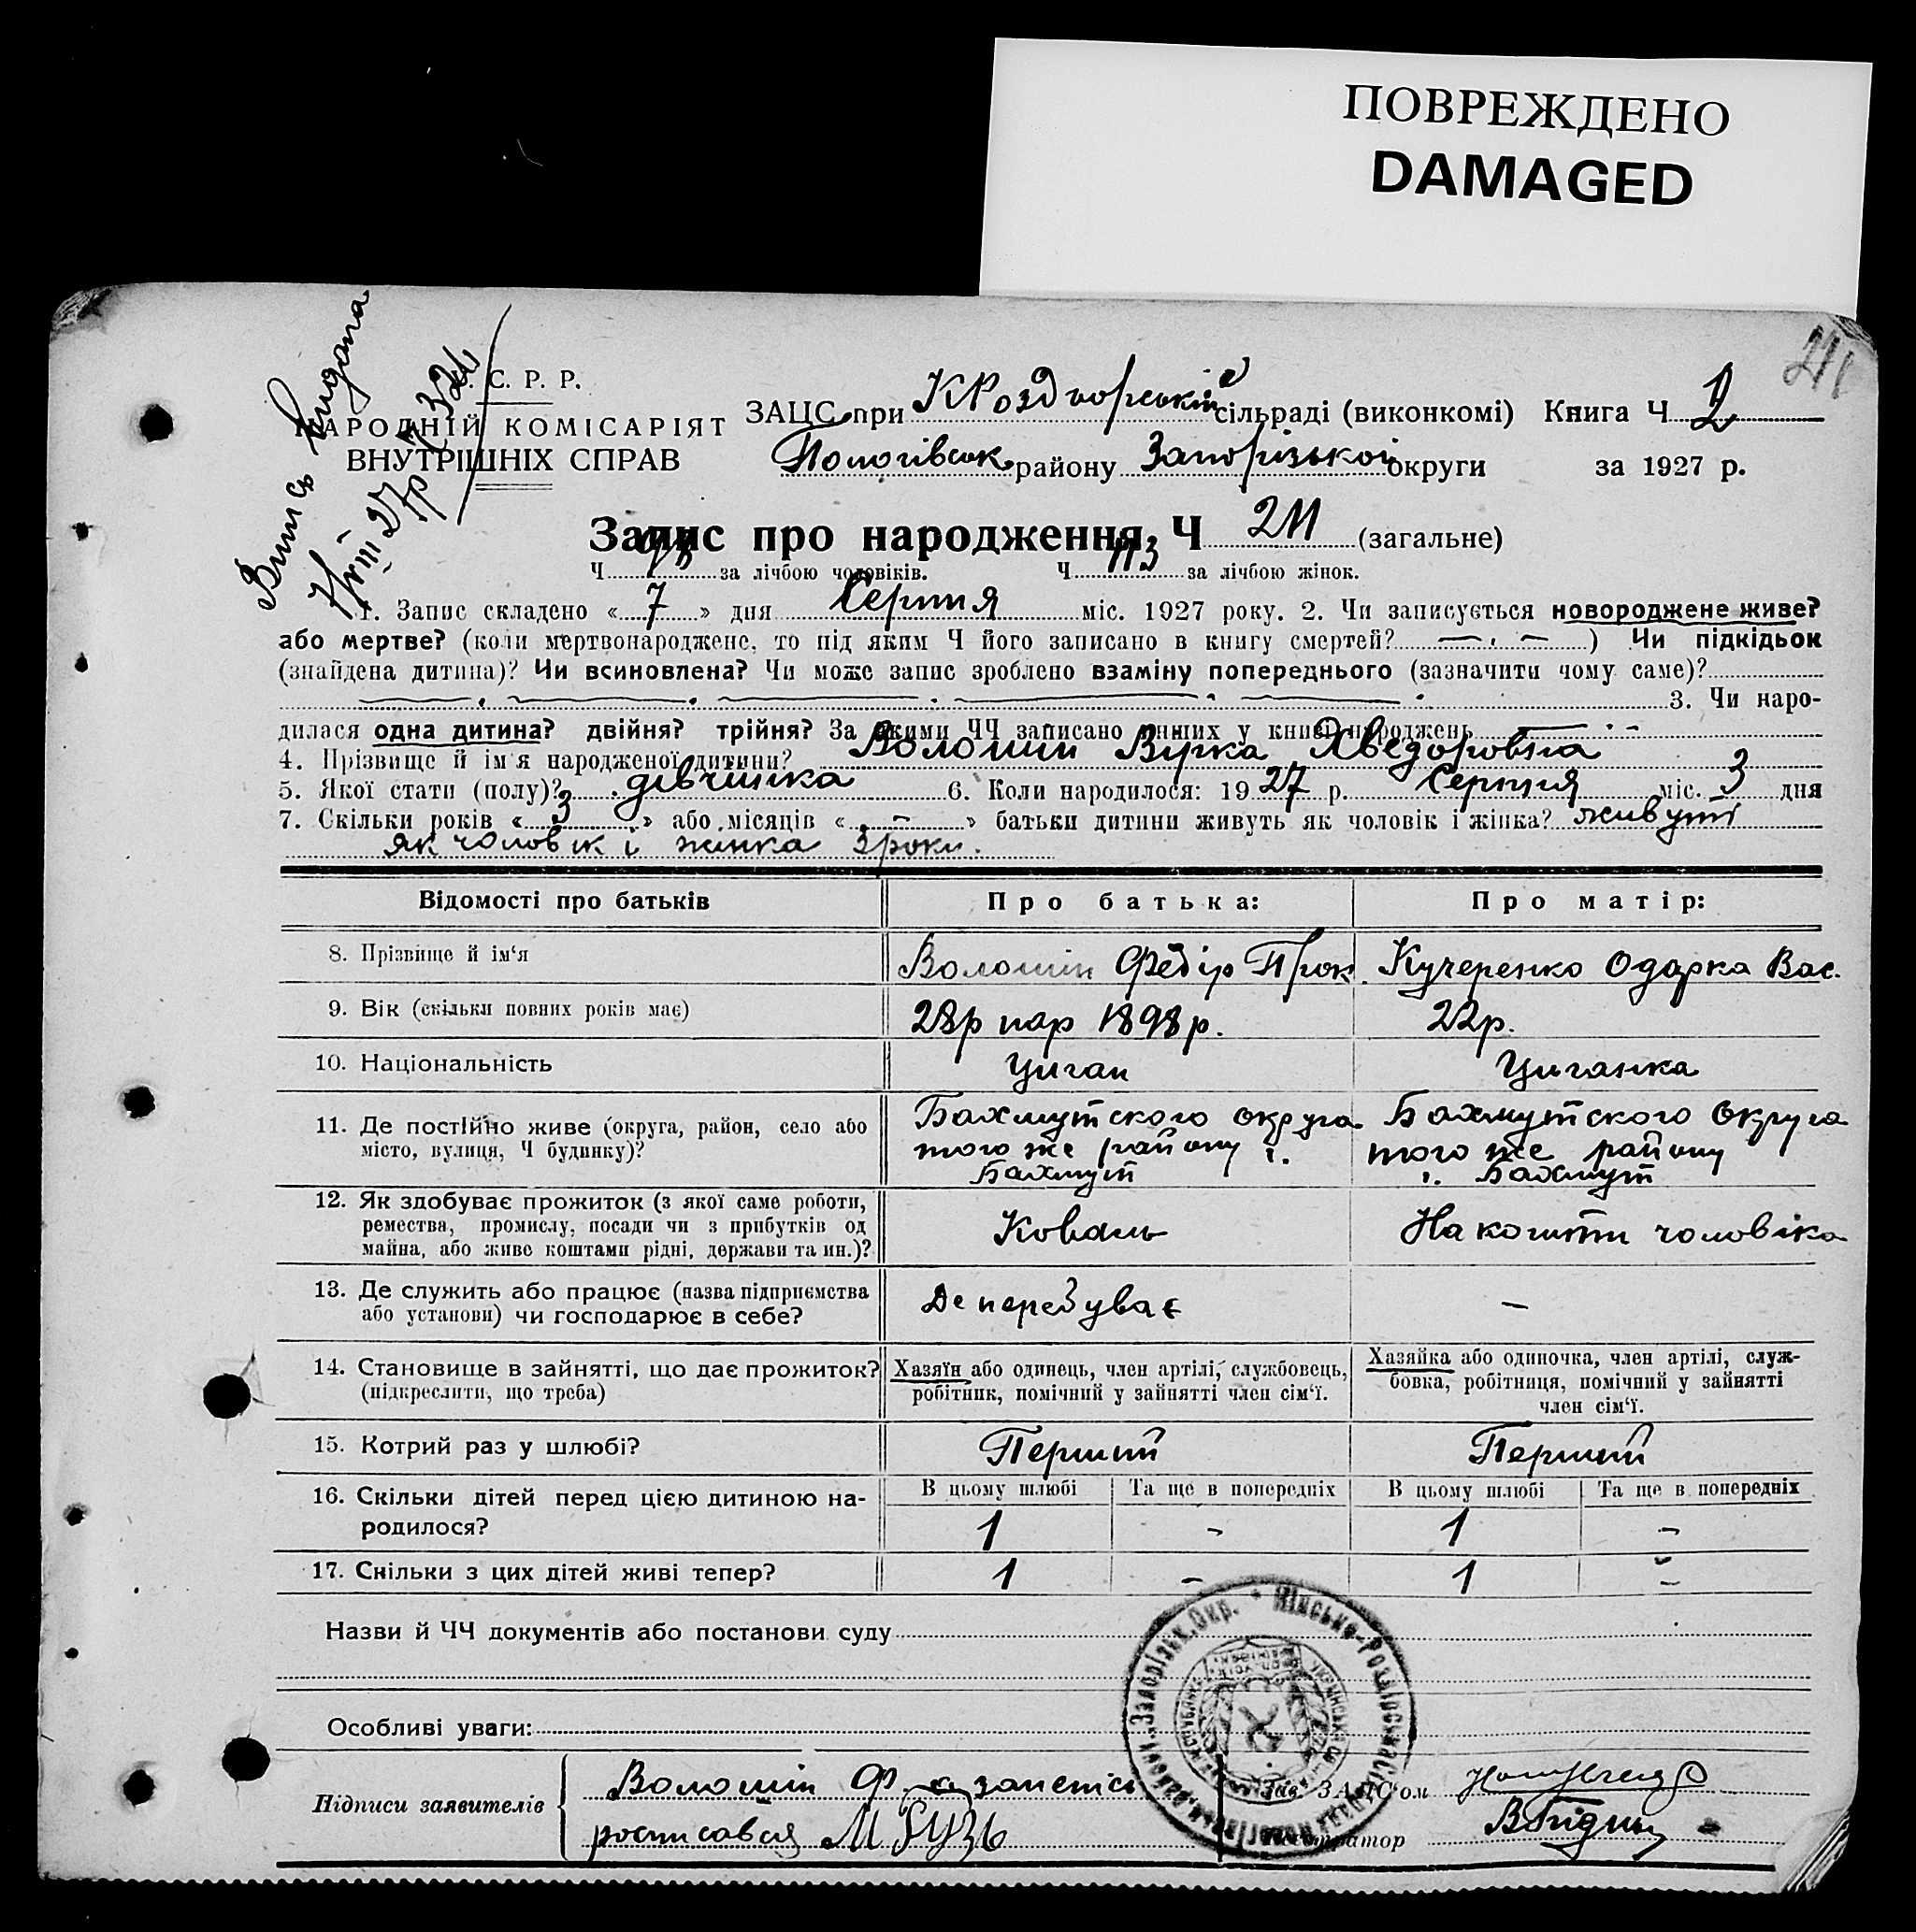 ПОВРЕЖДЕНО
DAMAGED
211
Випись видана
7/VIII 27 р № 324
У. С. Р. Р.
НАРОДНІЙ КОМІСАРІЯТ
ВНУТРІШНІХ СПРАВ
ЗАЦС при К Роздорській сільраді (виконкомі) Книга Ч 2
Пологівськ. району Запорізької округи за 1927 р.
Запис про народження Ч 211 (загальне)
Ч 98 за лічбою чоловіків. Ч 113 за лічбою жінок.
1. Запис складено « 7 » дня Серпня міс. 1927 року. 2. Чи записується новороджене живе?
або мертве? (коли мертвонароджене, то під яким Ч його записано в книгу смертей? — . — ) Чи підкідьок
(знайдена дитина)? Чи всиновлена? Чи може запис зроблено взаміну попереднього (зазначити чому саме)?
3. Чи наро-
дилася одна дитина? двійня? трійня? За якими ЧЧ записано инших у книзі народжень
4. Прізвище й ім'я народженої дитини? Волошин Вірка Хведоровна
5. Якої стати (полу)? дівчинка 6. Коли народилося: 1927 р. Серпня міс. 3 дня
7. Скільки років « 3 » або місяців « - » батьки дитини живуть як чоловік і жінка? живуть
як чоловік і жінка 3 роки.
Відомості про батьків Про батька: Про матір:
8. Прізвище й ім'я Волошін Федір Прок. Кучеренко Одарка Вас.
9. Вік (скільки повних років має) 28р нар 1898р. 22р.
10. Національність Циган Циганка
11. Де постійно живе (округа, район, село або місто, вулиця, Ч будинку)?
Бахмутского округа того же району г. Бахмут
Бахмутского округа того же району г. Бахмут
12. Як здобуває прожиток (з якої саме роботи,
ремества, промислу, посади чи з прибутків од
майна, або живе коштами рідні, держави та ин.)?
Коваль На кошти чоловіка
13. Де служить або працює (назва підприємства
або установи) чи господарює в себе?
Де перебуває —
14. Становище в зайнятті, що дає прожиток?
(підкреслити, що треба)
Хазяїн або одинець, член артілі, службовець,
робітник, помічний у зайнятті член сім'ї.
Хазяйка або одиночка, член артілі, служ-
бовка, робітниця, помічний у зайнятті
член сім'ї.
15. Котрий раз у шлюбі? Перший Перший
16. Скільки дітей перед цією дитиною на-
родилося?
В цьому шлюбі Та ще в попередніх В цьому шлюбі Та ще в попередніх
1 - 1 -
17. Скільки з цих дітей живі тепер? 1 - 1 -
Назви й ЧЧ документів або постанови суду
Особливі уваги:
Підписи заявителів
Волошін Ф. а за неписьм
росписався М Гузь
Зав. ЗАЦС'ом
Реєстратор
Запорізьк. Окр. • Кінсько-Роздорська сільрада